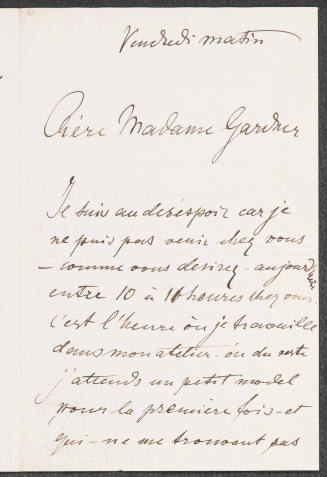 Vendredi matin
Chère Madame Gardner
Je suis au désespoir car je
ne puis pas venir chez vous
- comme vous desirez - aujourd'hui
entre 10 à 11 heures chez vous.
c'est l'heure où je travaille
dans mon atelier - où du reste
j'attends un petit model
pour la première fois - et
qui - ne me trouvant pas